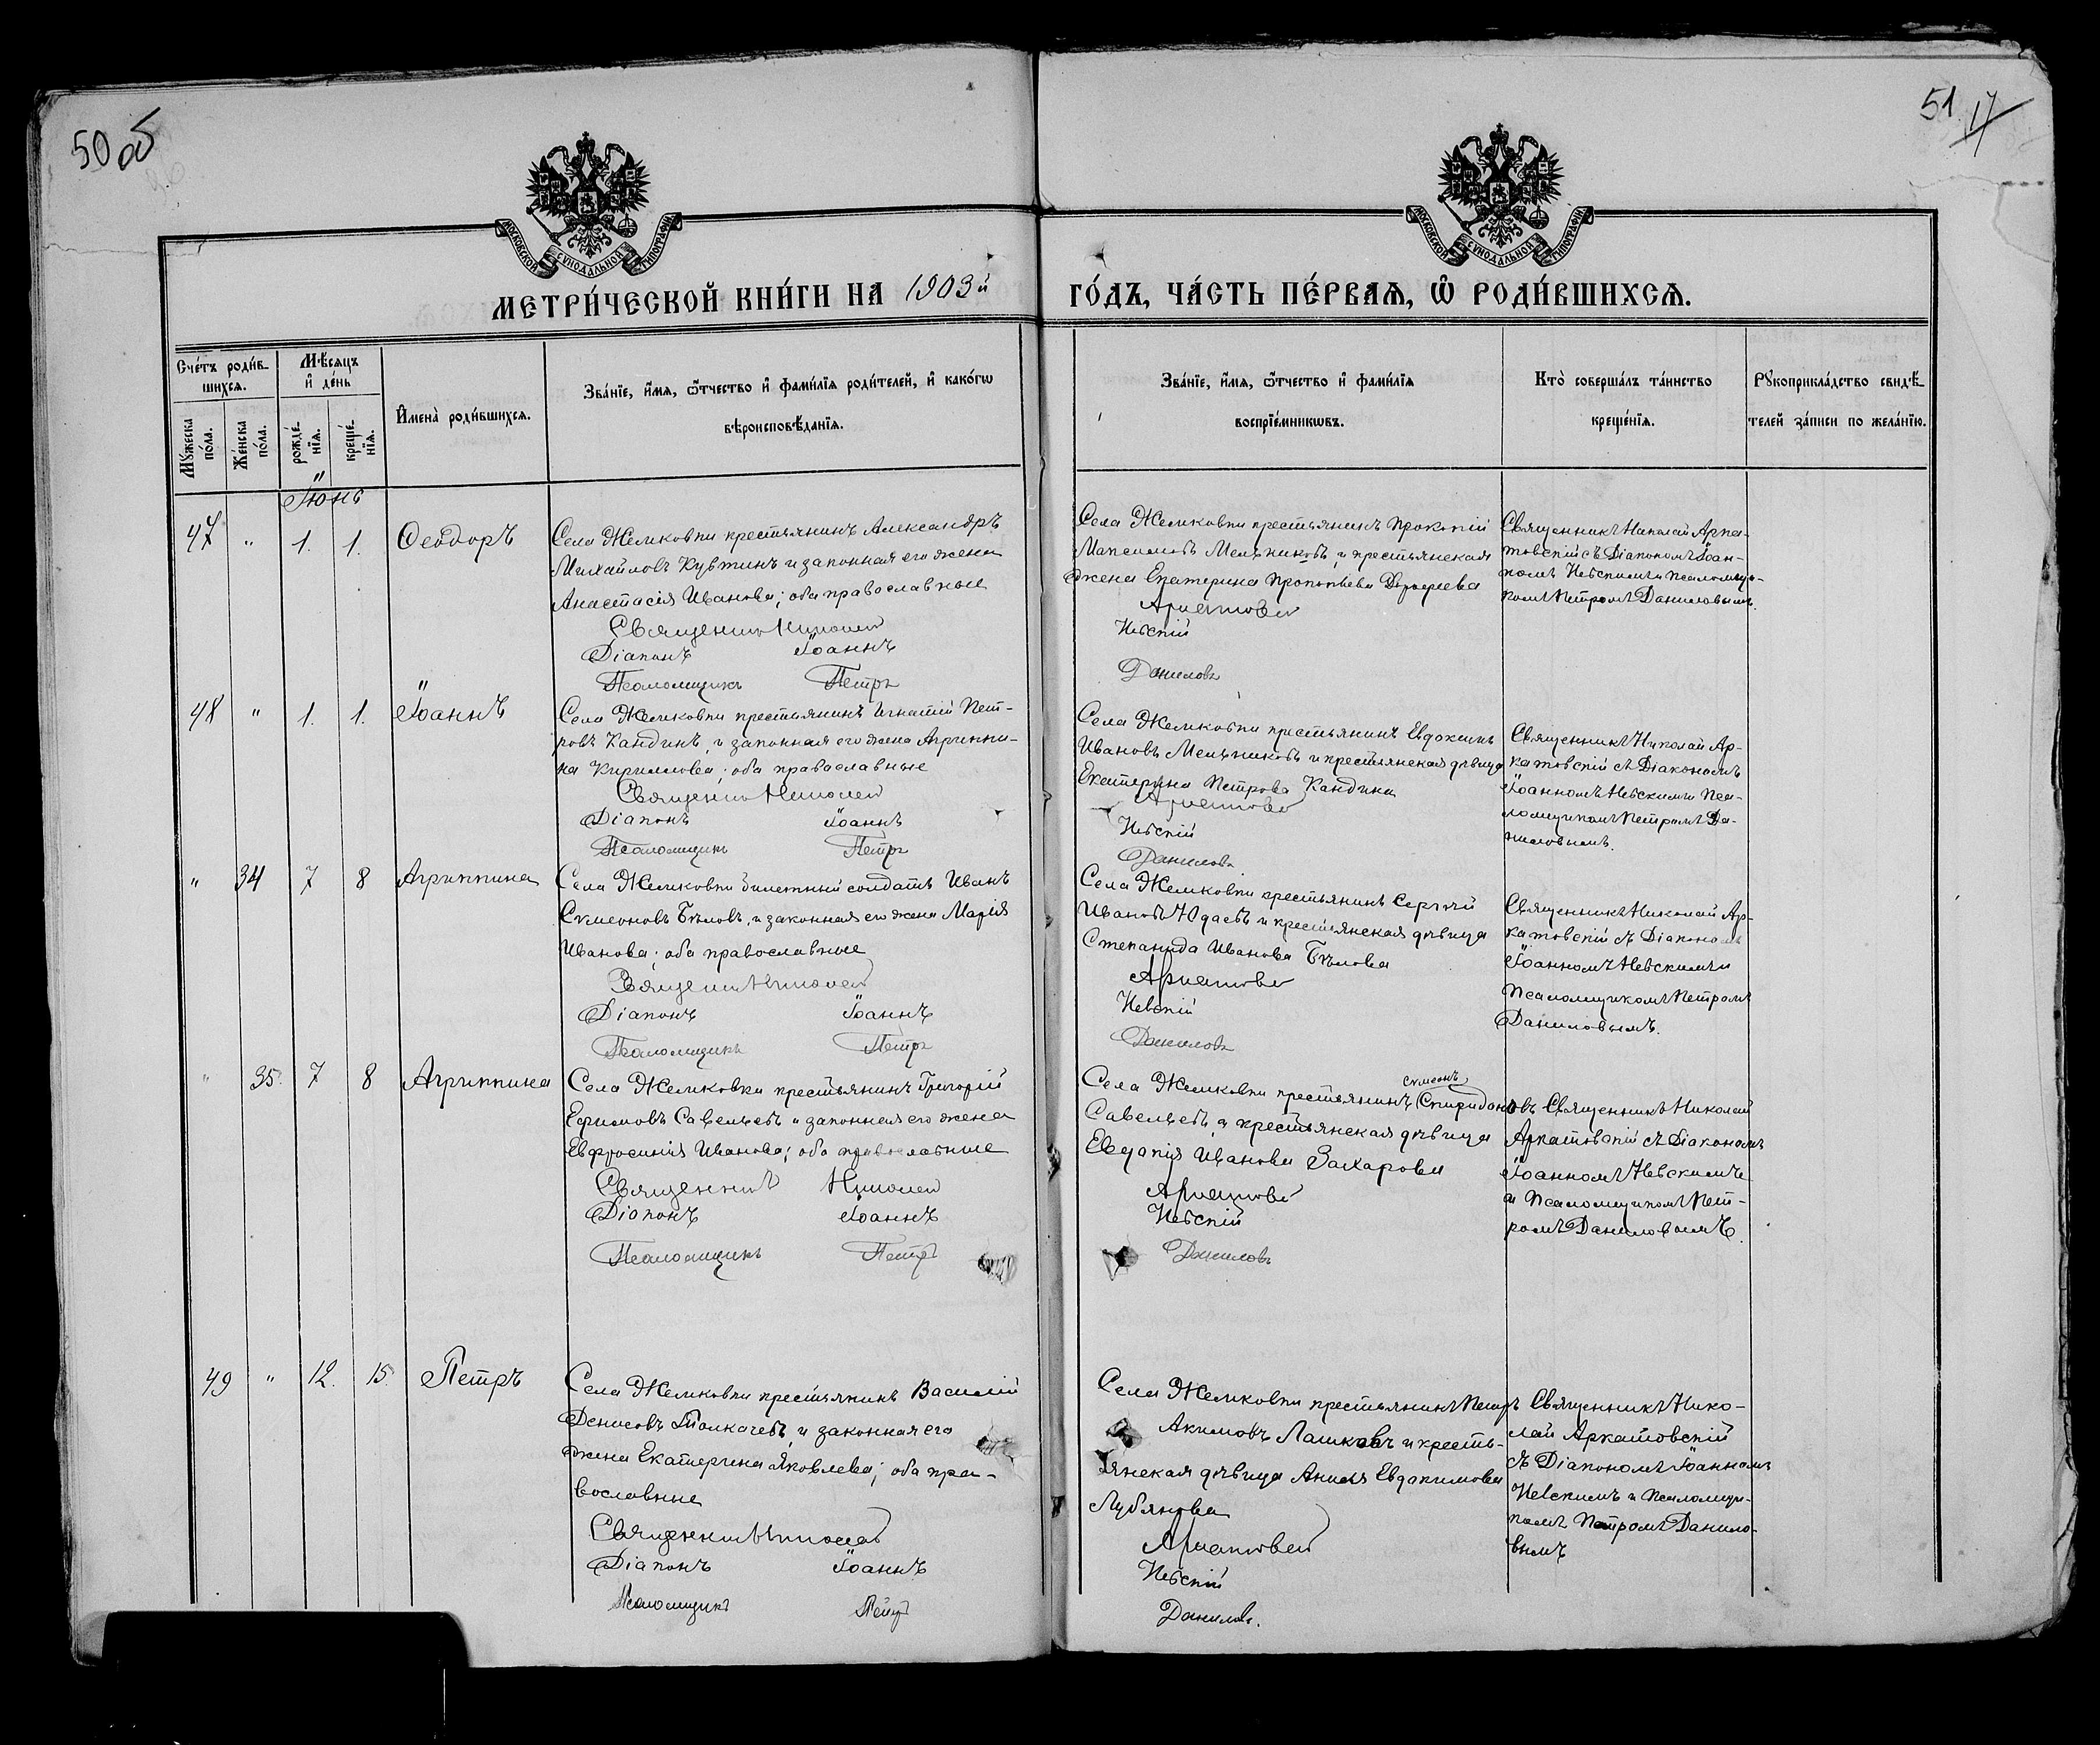 50 об
51 17
МОСКОВСКОЙ СУНОДАЛЬНОЙ ТИПОГРАФІИ
МОСКОВСКОЙ СУНОДАЛЬНОЙ ТИПОГРАФІИ
МЕТРИ́ЧЕСКОЙ КНИ́ГИ НА 1903й
ГО́ДЪ, ЧА́СТЬ ПЕ́РВАѦ, Ѡ҆ РОДИ́ВШИХСѦ.
Сче́тъ роди́в-
шихсѧ.
Мѣ́сѧцъ
и҆ де́нь
Мꙋжеска по́ла.
Же́нска по́ла.
рожде́-
нїѧ.
креще́-
нїѧ.
И҆мена̀ роди́вшихсѧ.
Зва́нїе, и҆́мѧ, ѻ҆́тчество и҆ фами́лїѧ роди́телей, и҆ како́гѡ
вѣроисповѣ́данїѧ.
Зва́нїе, и҆́мѧ, ѻ҆́тчество и҆ фами́лїѧ
воспрїе́мникѡвъ.
Кто̀ соверша́лъ та́инство
креще́нїѧ.
Рꙋкоприкла́дство свидѣ́-
телей за́писи по жела́нїю.
Іюнь
47 " 1. 1. Ѳеодоръ
Села Желковки крестьянинъ Александръ
Михайловъ и законная его жена
Анастасія Иванова; оба православные
Священникъ Николай
Діаконъ Іоаннъ
Псаломщикъ Петръ
Села Желковки крестьянинъ Прокопій
Максимовъ Мельниковъ, и крестьянская
жена Екатерина Прокопьева
Аркатовскій
Невскій
Даниловъ
Священникъ Николай Арка-
товскій съ Діакономъ Іоан-
номъ Невскимъ и псаломщи-
комъ Петромъ Даниловымъ.
48 " 1. 1. Іоаннъ
Села Желковки крестьянинъ Игнатій Пет-
ровъ Кандинъ, и законная его жена Агриппи-
на Кириллова; оба православные
Священникъ Николай
Діаконъ Іоаннъ
Псаломщикъ Петръ
Села Желковки крестьянинъ Евдокимъ
Ивановъ Мельниковъ и крестьянская дѣвица
Екатерина Петрова Кандина
Аркатовскій
Невскій
Даниловъ
Священникъ Николай Ар-
катовскій съ Діакономъ
Іоанномъ Невскимъ и Пса-
ломщикомъ Петромъ Да-
ниловымъ.
" 34 7 8 Агриппина
Села Желковки билетный солдатъ Иванъ
Симеоновъ Бѣловъ, и законная его жена Марія
Иванова; оба православные
Священникъ Николай
Діаконъ Іоаннъ
Псаломщикъ Петръ
Села Желковки крестьянинъ Сергѣй
Ивановъ Юдаевъ и крестьянская дѣвица
Степанида Иванова Бѣлова
Аркатовскій
Невскій
Даниловъ
Священникъ Николай Ар-
катовскій съ Діакономъ
Іоанномъ Невскимъ и
Псаломщикомъ Петромъ
Даниловымъ.
" 35. 7 8 Агриппина
Села Желковки крестьянинъ Григорій
Ефимовъ Савельевъ и законная его жена
Евфросинія Иванова; оба православные
Священникъ Николай
Діаконъ Іоаннъ
Псаломщикъ Петръ
Симеонъ
Села Желковки крестьянинъ Спиридоновъ
Савельевъ, и крестьянская дѣвица
Евдокія Иванова Захарова
Аркатовскій
Невскій
Даниловъ
Священникъ Николай
Аркатовскій съ Діакономъ
Іоанномъ Невскимъ
и Псаломщикомъ Пет-
ромъ Даниловымъ.
49 " 12. 15. Петръ
Села Желковки крестьянинъ Василій
Денисовъ Толкачевъ, и законная его
жена Екатерина Яковлева; оба пра-
вославные
Священникъ Николай
Діаконъ Іоаннъ
Псаломщикъ Петръ
Села Желковки крестьянинъ Петръ
Акимовъ Лашковъ и кресть-
янская дѣвица Анисія Евдокимова
Лубянова
Аркатовскій
Невскій
Даниловъ.
Священникъ Нико-
лай Аркатовскій
съ Діакономъ Іоанномъ
Невскимъ и Псаломщи-
комъ Петромъ Данило-
вымъ